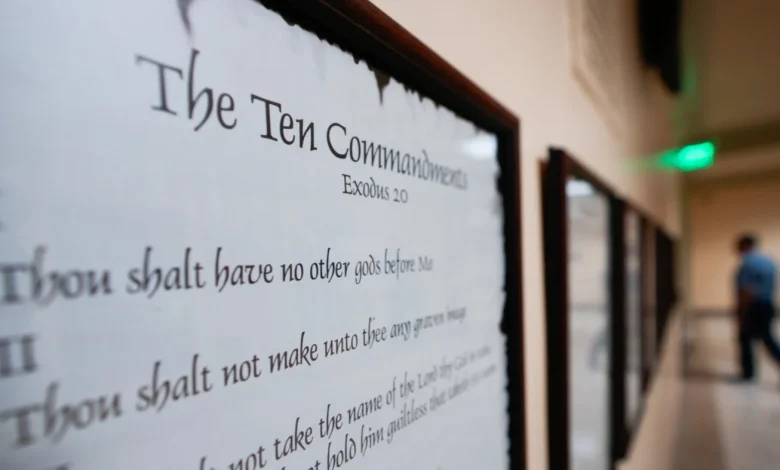 The Ten Commandments
Exodus 20
Thou shalt have no other gods before Me
II
Thou shalt not make unto thee any graven image
not take the name of the Lord thy God in
not hold him guiltless that